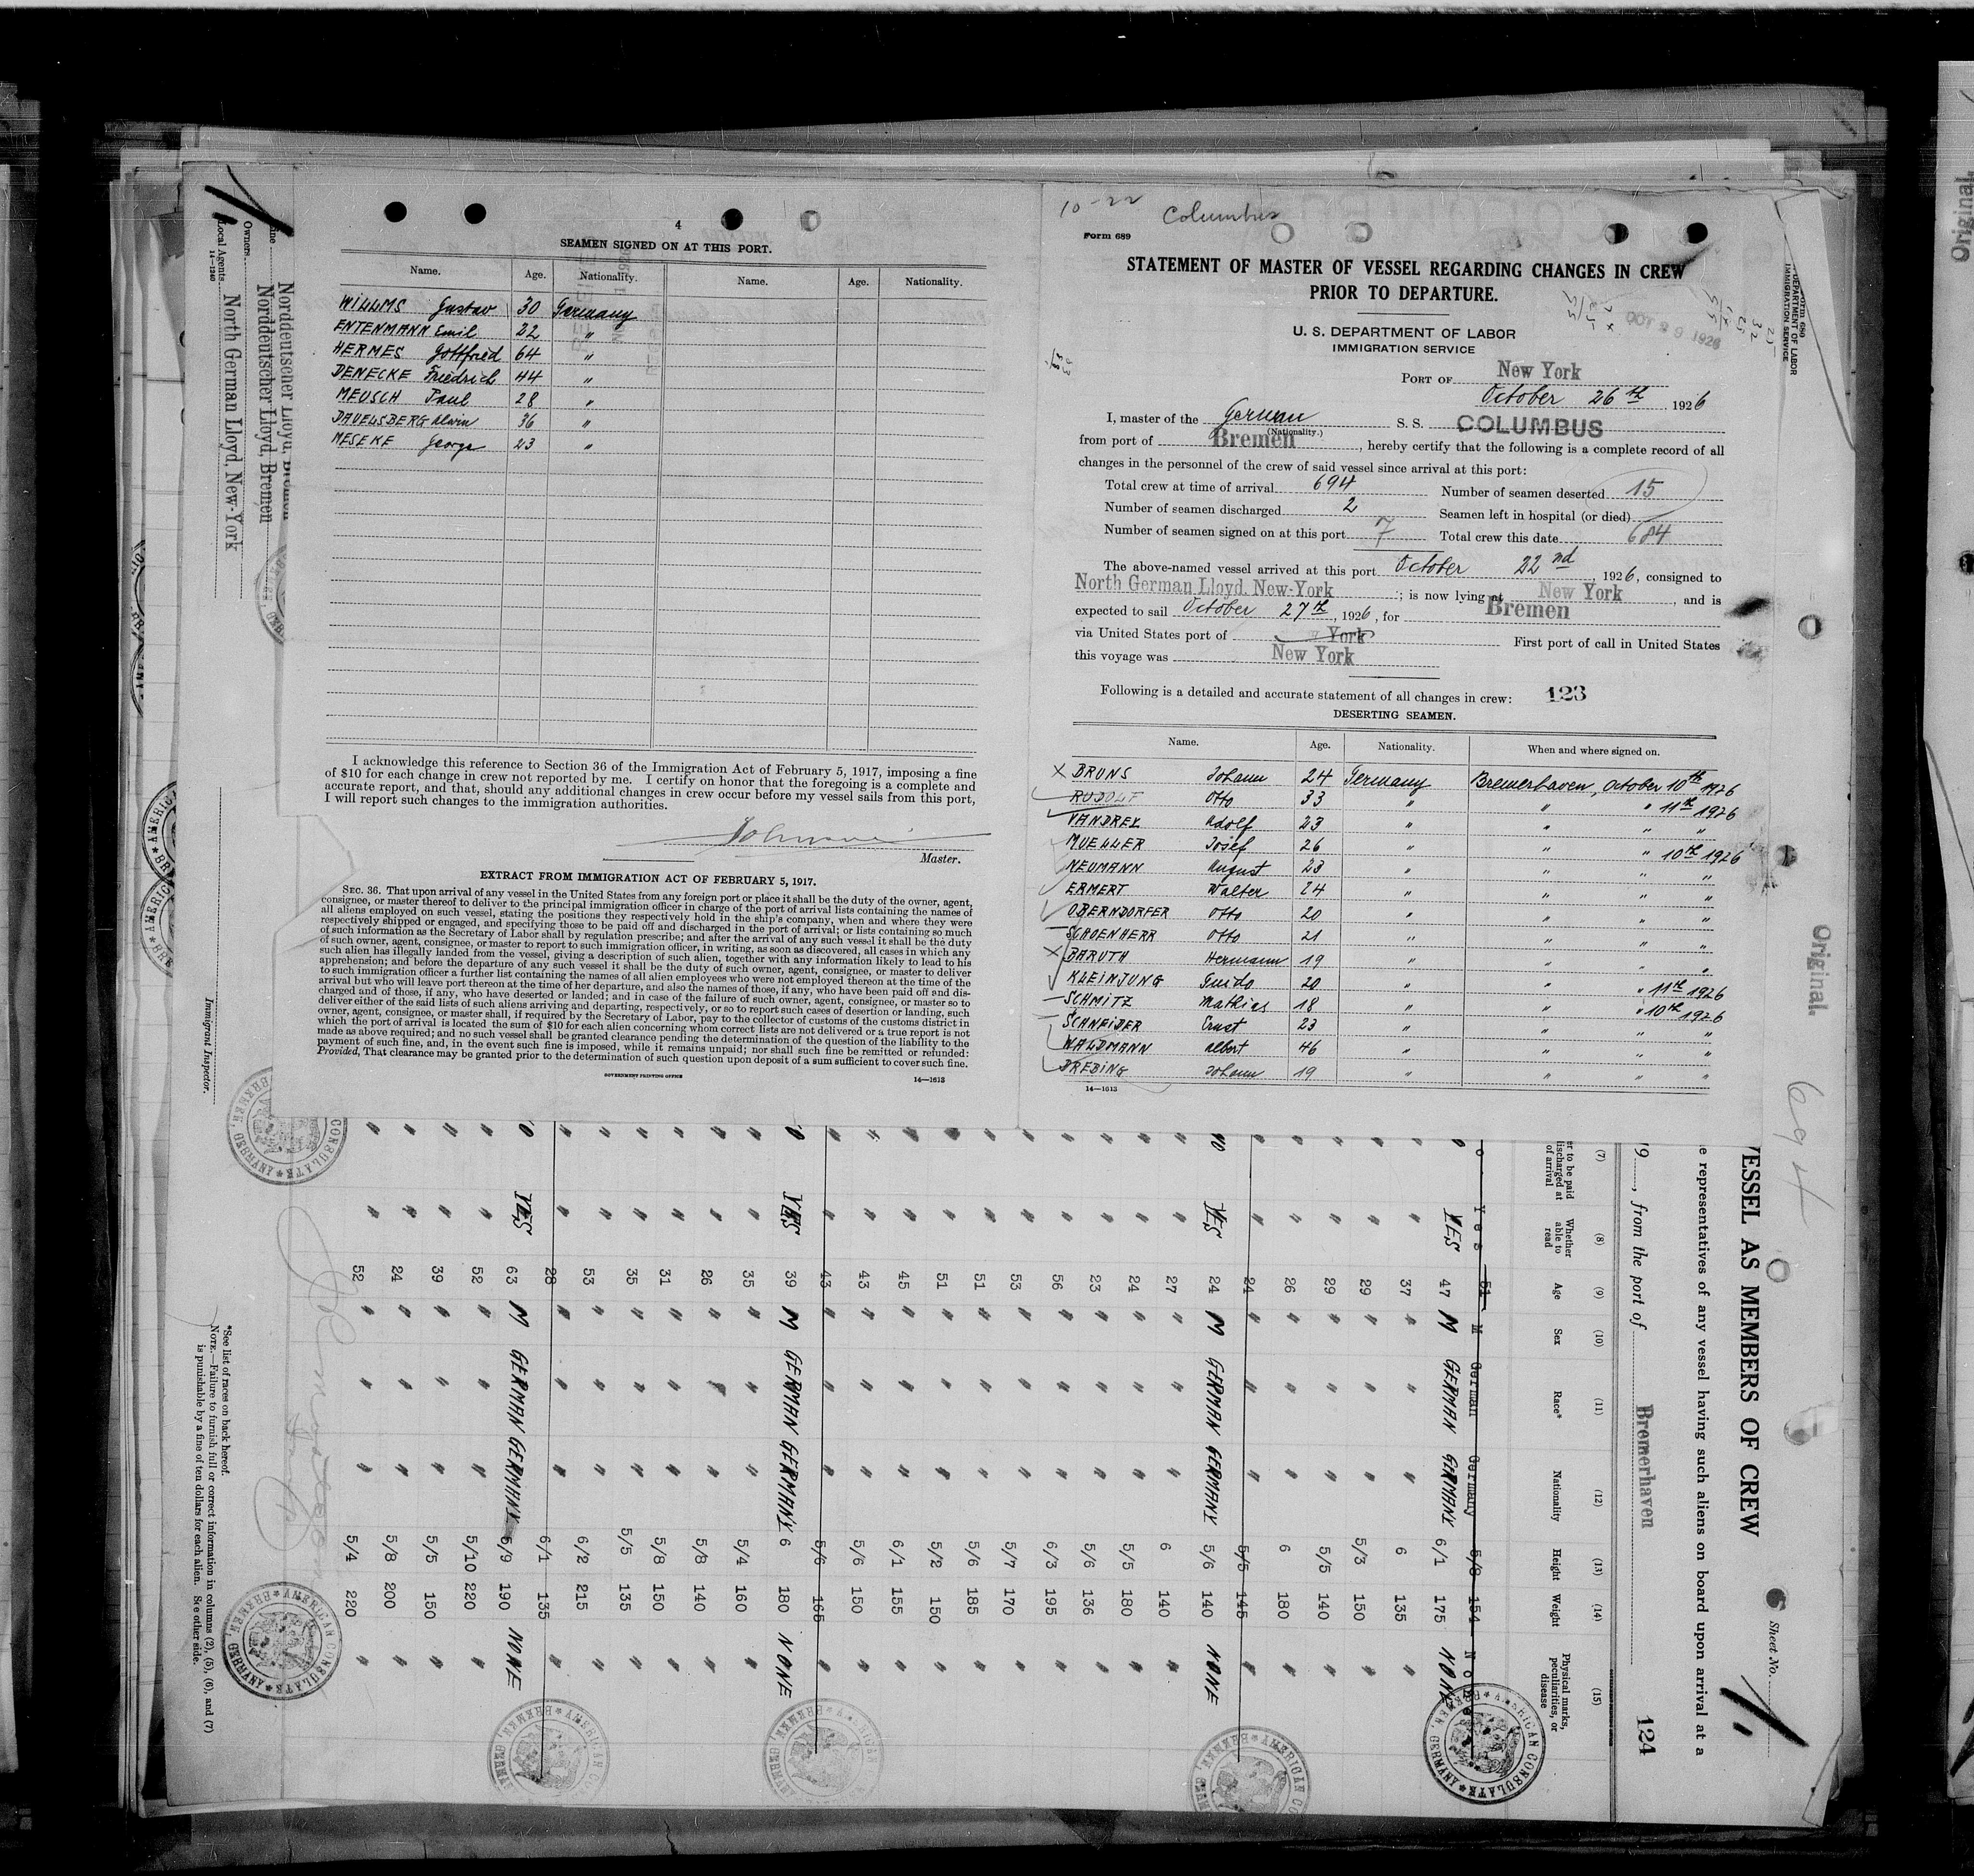 4
SEAMEN SIGNED ON AT THIS PORT.
Name. Age. Nationality. Name. Age. Nationality.
WILLMS Gustav 30 Germany
ENTENMANN Emil 22 "
HERMES Gottfried 64 "
DENECKE Friedrich 44 "
MEUSCH Paul 28 "
DAVELSBERG Alwin 36 "
MESEKE George 23 "
I acknowledge this reference to Section 36 of the Immigration Act of February 5, 1917, imposing a fine
of $10 for each change in crew not reported by me. I certify on honor that the foregoing is a complete and
accurate report, and that, should any additional changes in crew occur before my vessel sails from this port,
I will report such changes to the immigration authorities.
Master.
EXTRACT FROM IMMIGRATION ACT OF FEBRUARY 5, 1917.
SEC. 36. That upon arrival of any vessel in the United States from any foreign port or place it shall be the duty of the owner, agent,
consignee, or master thereof to deliver to the principal immigration officer in charge of the port of arrival lists containing the names of
all aliens employed on such vessel, stating the positions they respectively hold in the ship's company, when and where they were
respectively shipped or engaged, and specifying those to be paid off and discharged in the port of arrival; or lists containing so much
of such information as the Secretary of Labor shall by regulation prescribe; and after the arrival of any such vessel it shall be the duty
of such owner, agent, consignee, or master to report to such immigration officer, in writing, as soon as discovered, all cases in which any
such alien has illegally landed from the vessel, giving a description of such alien, together with any information likely to lead to his
apprehension; and before the departure of any such vessel it shall be the duty of such owner, agent, consignee, or master to deliver
to such immigration officer a further list containing the names of all alien employees who were not employed thereon at the time of the
arrival but who will leave port thereon at the time of her departure, and also the names of those, if any, who have been paid off and dis-
charged and of those, if any, who have deserted or landed; and in case of the failure of such owner, agent, consignee, or master so to
deliver either of the said lists of such aliens arriving and departing, respectively, or so to report such cases of desertion or landing, such
owner, agent, consignee, or master, shall, if required by the Secretary of Labor, pay to the collector of customs of the customs district in
which the port of arrival is located the sum of $10 for each alien concerning whom correct lists are not delivered or a true report is not
made as above required; and no such vessel shall be granted clearance pending the determination of the question of the liability to the
payment of such fine, and, in the event such fine is imposed, while it remains unpaid; nor shall such fine be remitted or refunded:
Provided, That clearance may be granted prior to the determination of such question upon deposit of a sum sufficient to cover such fine.
GOVERNMENT PRINTING OFFICE 14—1613
10-22 Columbus
Form 689
STATEMENT OF MASTER OF VESSEL REGARDING CHANGES IN CREW
PRIOR TO DEPARTURE.
U. S. DEPARTMENT OF LABOR
IMMIGRATION SERVICE
OCT 29 1926
PORT OF New York
October 26th, 1926
I, master of the German S. S. COLUMBUS
(Nationality.)
from port of Bremen, hereby certify that the following is a complete record of all
changes in the personnel of the crew of said vessel since arrival at this port:
Total crew at time of arrival 694 Number of seamen deserted 15
Number of seamen discharged 2 Seamen left in hospital (or died)
Number of seamen signed on at this port 7 Total crew this date 684
The above-named vessel arrived at this port October 22nd, 1926, consigned to
North German Lloyd, New-York; is now lying at New York, and is
expected to sail October 27th, 1926, for Bremen
via United States port of York First port of call in United States
this voyage was New York
Following is a detailed and accurate statement of all changes in crew: 123
DESERTING SEAMEN.
Name. Age. Nationality. When and where signed on.
BRUNS Johann 24 Germany Bremerhaven, October 10th 1926
RUDOLF Otto 33 " " " 11th 1926
VANDREY Adolf 23 " " " "
MUELLER Josef 26 " " " 10th 1926
NEUMANN August 23 " " " "
ERMERT Walter 24 " " " "
OBERNDORFER Otto 20 " " " "
SCHOENHERR Otto 21 " " " "
BARUTH Hermann 19 " " " "
KLEINJUNG Guido 20 " " " 11th 1926
SCHMITZ Mathias 18 " " " 10th 1926
SCHNEIDER Ernst 23 " " " "
WALDMANN Albert 46 " " " "
DREBING Johann 19 " " " "
14—1613
Owners Norddeutscher Lloyd, Bremen
Norddeutscher Lloyd, Bremen
Local Agents North German Lloyd, New-York
14-1240
Immigrant Inspector.
Original.
Original
694
VESSEL AS MEMBERS OF CREW
Sheet No.
e representatives of any vessel having such aliens on board upon arrival at a
19, from the port of Bremerhaven 124
(7) (8) (9) (10) (11) (12) (13) (14) (15)
er to be paid discharged at of arrival
Whether able to read
Age
Sex
Race*
Nationality
Height
Weight
Physical marks, peculiarities, or disease
Yes 51 M German Germany 5/8 154 None
YES 47 M GERMAN GERMANY 6/1 175 NONE
" 37 " " " 6 135 "
" 29 " " " 5/3 150 "
" 29 " " " 5/5 140 "
" 26 " " " 6 180 "
" 24 " " " 5/5 145 "
YES 24 M GERMAN GERMANY 5/6 140 NONE
" 27 " " " 6 140 "
" 24 " " " 5/5 180 "
" 23 " " " 5/6 136 "
" 56 " " " 6/3 195 "
" 53 " " " 5/7 170 "
" 51 " " " 5/6 185 "
" 51 " " " 5/2 150 "
" 45 " " " 6/1 155 "
" 43 " " " 5/6 150 "
" 43 " " " 5/6 165 "
YES 39 M GERMAN GERMANY 6 180 NONE
" 35 " " " 5/4 160 "
" 26 " " " 5/8 140 "
" 31 " " " 5/8 150 "
" 35 " " " 5/5 135 "
" 53 " " " 6/2 215 "
" 28 " " " 6/1 135 "
YES 63 M GERMAN GERMANY 5/9 190 NONE
" 52 " " " 5/10 220 "
" 39 " " " 5/5 150 "
" 24 " " " 5/8 200 "
" 52 " " " 5/4 220 "
*See list of races on back hereof.
NOTE.—Failure to furnish full or correct information in columns (2), (5), (6), and (7)
is punishable by a fine of ten dollars for each alien. See other side.
AMERICAN CONSULATE
BREMEN, GERMANY